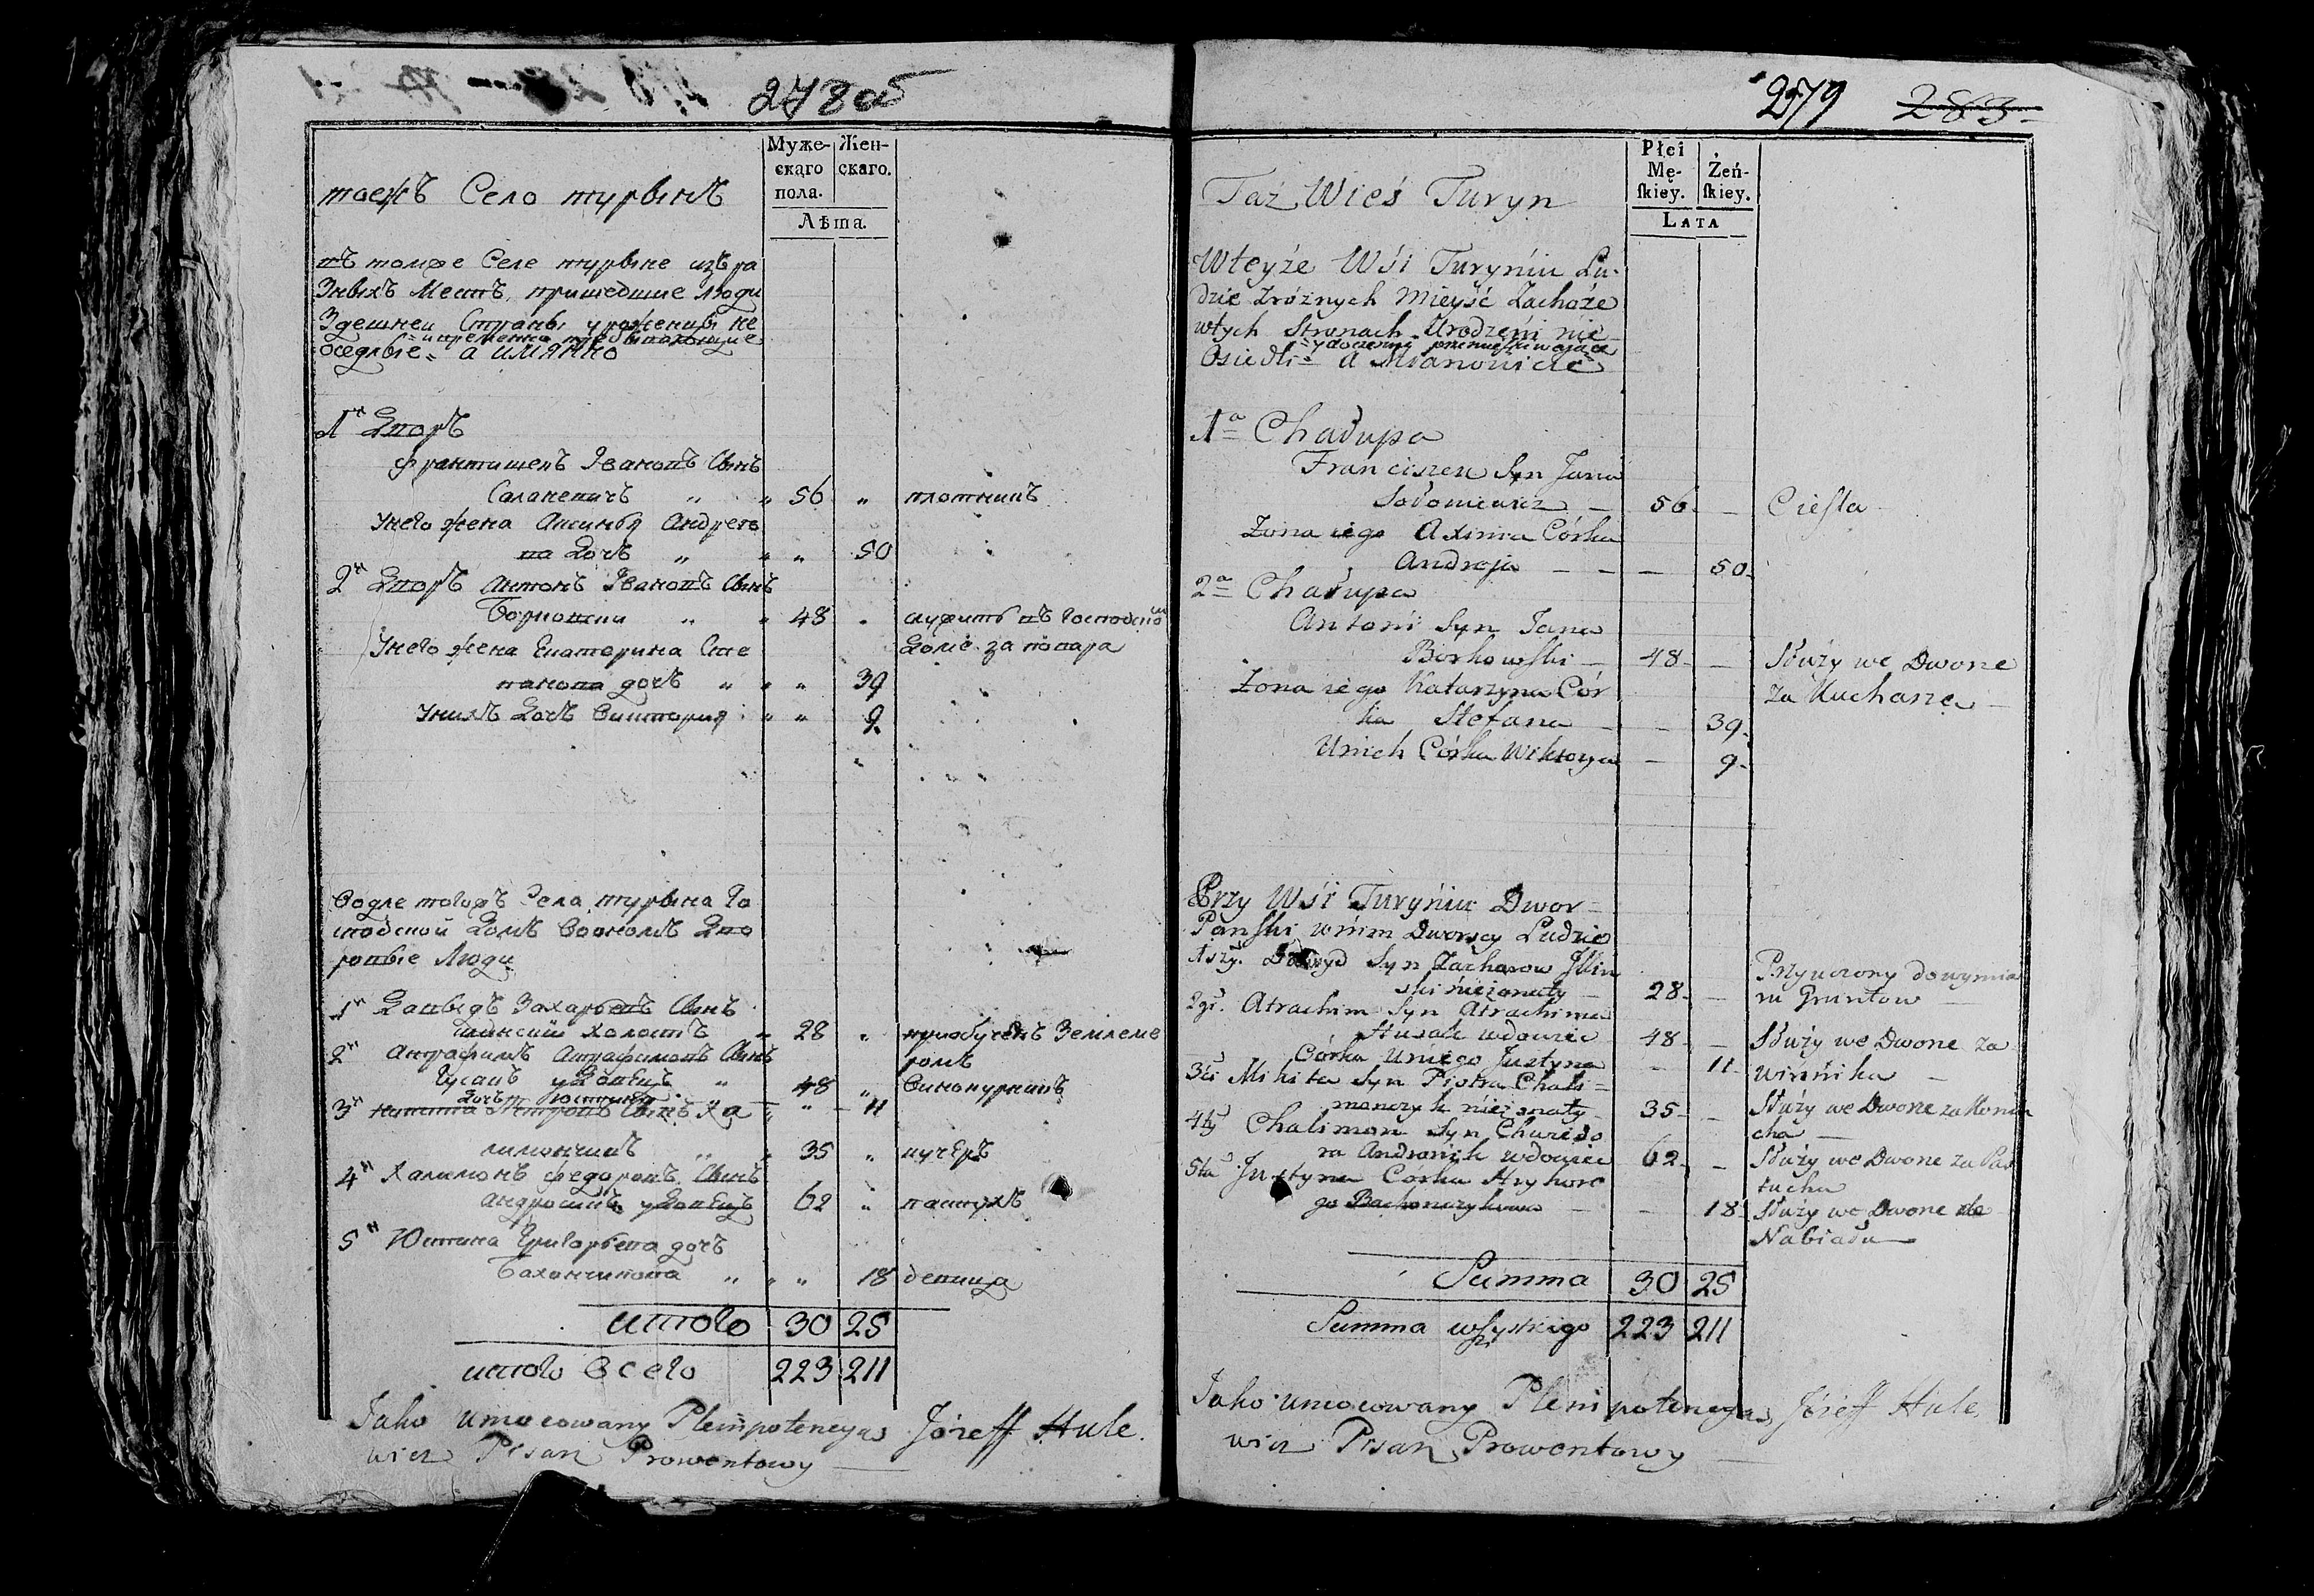 278об
Муже-
скаго
пола.
Жен-
скаго.
Лѣта.
тоежъ Село турынъ
въ томже Селе турыне изъ ра
Зныхъ Местъ, пришедшие люди
Здешнеи Страны уроженцы не
оседлые а имянно
1й Дворъ
францишекъ Івановъ Сынъ
56 плотникъ
Унего жена Аксинья Андрее
ва дочъ 50
2й Дворъ Антонъ Івановъ Сынъ
Борковски 48 служитъ въ Господско
Доме за повара
Унего жена Екатерина Сте
панова дочъ 39
Унихъ дочъ Виктория 9
Возле тогожъ Села турына Го
сподской Домъ Воономъ Дво
ровые Люди
1й Давыдъ Захарьевъ Сынъ
холостъ 28 приобученъ Землеме
ромъ
2й Сынъ
Гусакъ удовецъ 48 Винокурникъ
дочъ Юстина 11
3й Никита Петровъ Сынъ Ха
лимончикъ 35 кучеръ
4й Халимонъ федоровъ Сынъ
андросикъ удовецъ 62 пастухъ
5й Юстина Григорьева дочъ
Бахончикова 18 девица
итого 30 25
итого Всего 223 211
Jako umocowany Plenipotencyą Józeff Hule.
wicz Pisarz Prowentowy
279 283
Płci
Mę-
ſkiey.
Żeń-
ſkiey.
LATA
Taż Wieś Turyn
Wteyże Wśi Turyńiu Lu-
dzie Zróżnych Mieyść Zachoże
wtych Stronach Urodzeni nie
Osiedli a Mianowicie
1a Chałupa
Franciszek Syn Jana
56 Cieſla
Zona iego Axinia Córka
Andreja 50
2a Chałupa
Antoni Syn Jana
Borkowski 48 Słuzy we Dworze
Za Kucharza
Zona iego Katarzyna Cór
ka Stefana 39
Unich Córka Wiktorya 9
Przy Wśi Turyńiu Dwor
Panski wnim Dworscy Ludzie
1szy. Dawyd Syn Zacharow
nieżonaty 28 Przyuczony do wymia
ru Gruntow
2gi. Atrachim Syn Atrachima
Husak wdowiec 48 Słuzy we Dworze Za
Winnika
Córka Uniego Justyna 11
3ći Mikita Syn Piotra Chali-
monczyk nieżonaty 35 Słuzy we Dworze za Koniu
cha
4ty Chalimon Syn Chwiedo
ra Androsik wdowiec 62 Słuzy we Dworze za Pas
tucha
5ta Justyna Córka Hryhore
go Bachonczykowa 18 Słuzy we Dworze do
Nabiału
Summa 30 25
Summa wszystkiego 223 211
Jako umocowany Plenipotencyą Józeff Hule.
wicz Pisarz Prowentowy